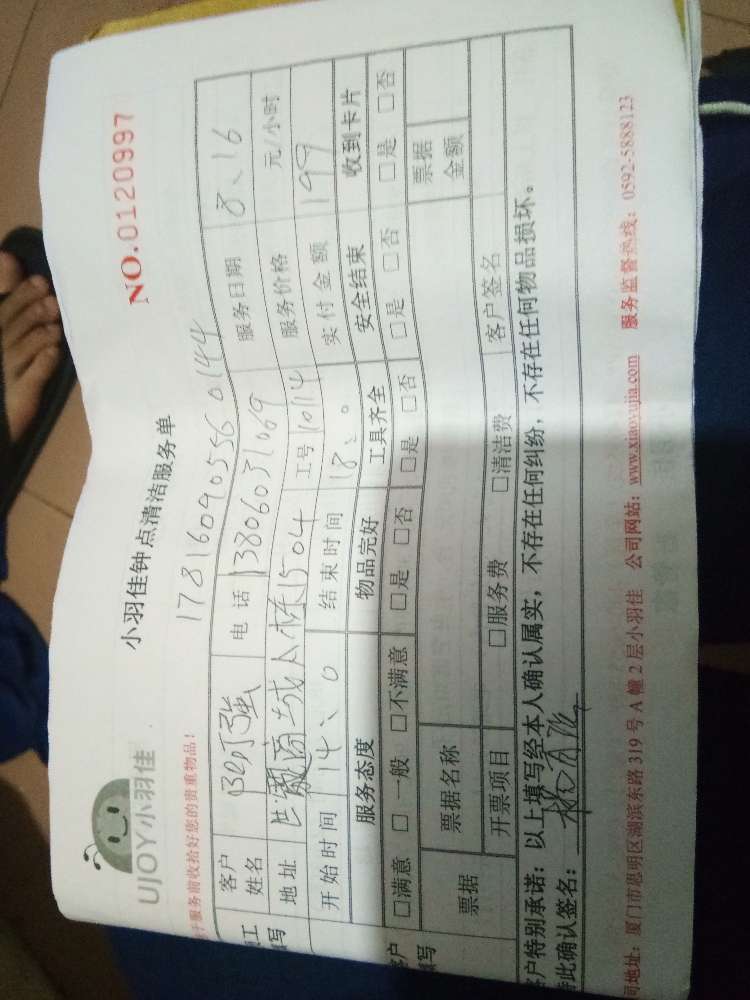 UJOY小羽佳
小羽佳钟点清洁服务单
NO.0120997
于服务前收拾好您的贵重物品!
178160905560144
客户姓名 电话 13806031069 服务日期 8、16
地址 1504 服务价格 元/小时
工号 10114 实付金额 199
开始时间 14:0 结束时间 18:0
服务态度 物品完好 工具齐全 安全结束 收到卡片
□满意 □一般 □不满意 □是 □否 □是 □否 □是 □否 □是 □否
票据 票据名称 票据金额
开票项目 □服务费 □清洁费 客户签名
客户特别承诺:以上填写经本人确认属实,不存在任何纠纷,不存在任何物品损坏。
特此确认签名:
司地址:厦门市思明区湖滨东路319号A幢2层小羽佳 公司网站:www.xiaoyujia.com 服务监督热线:0592-5888123